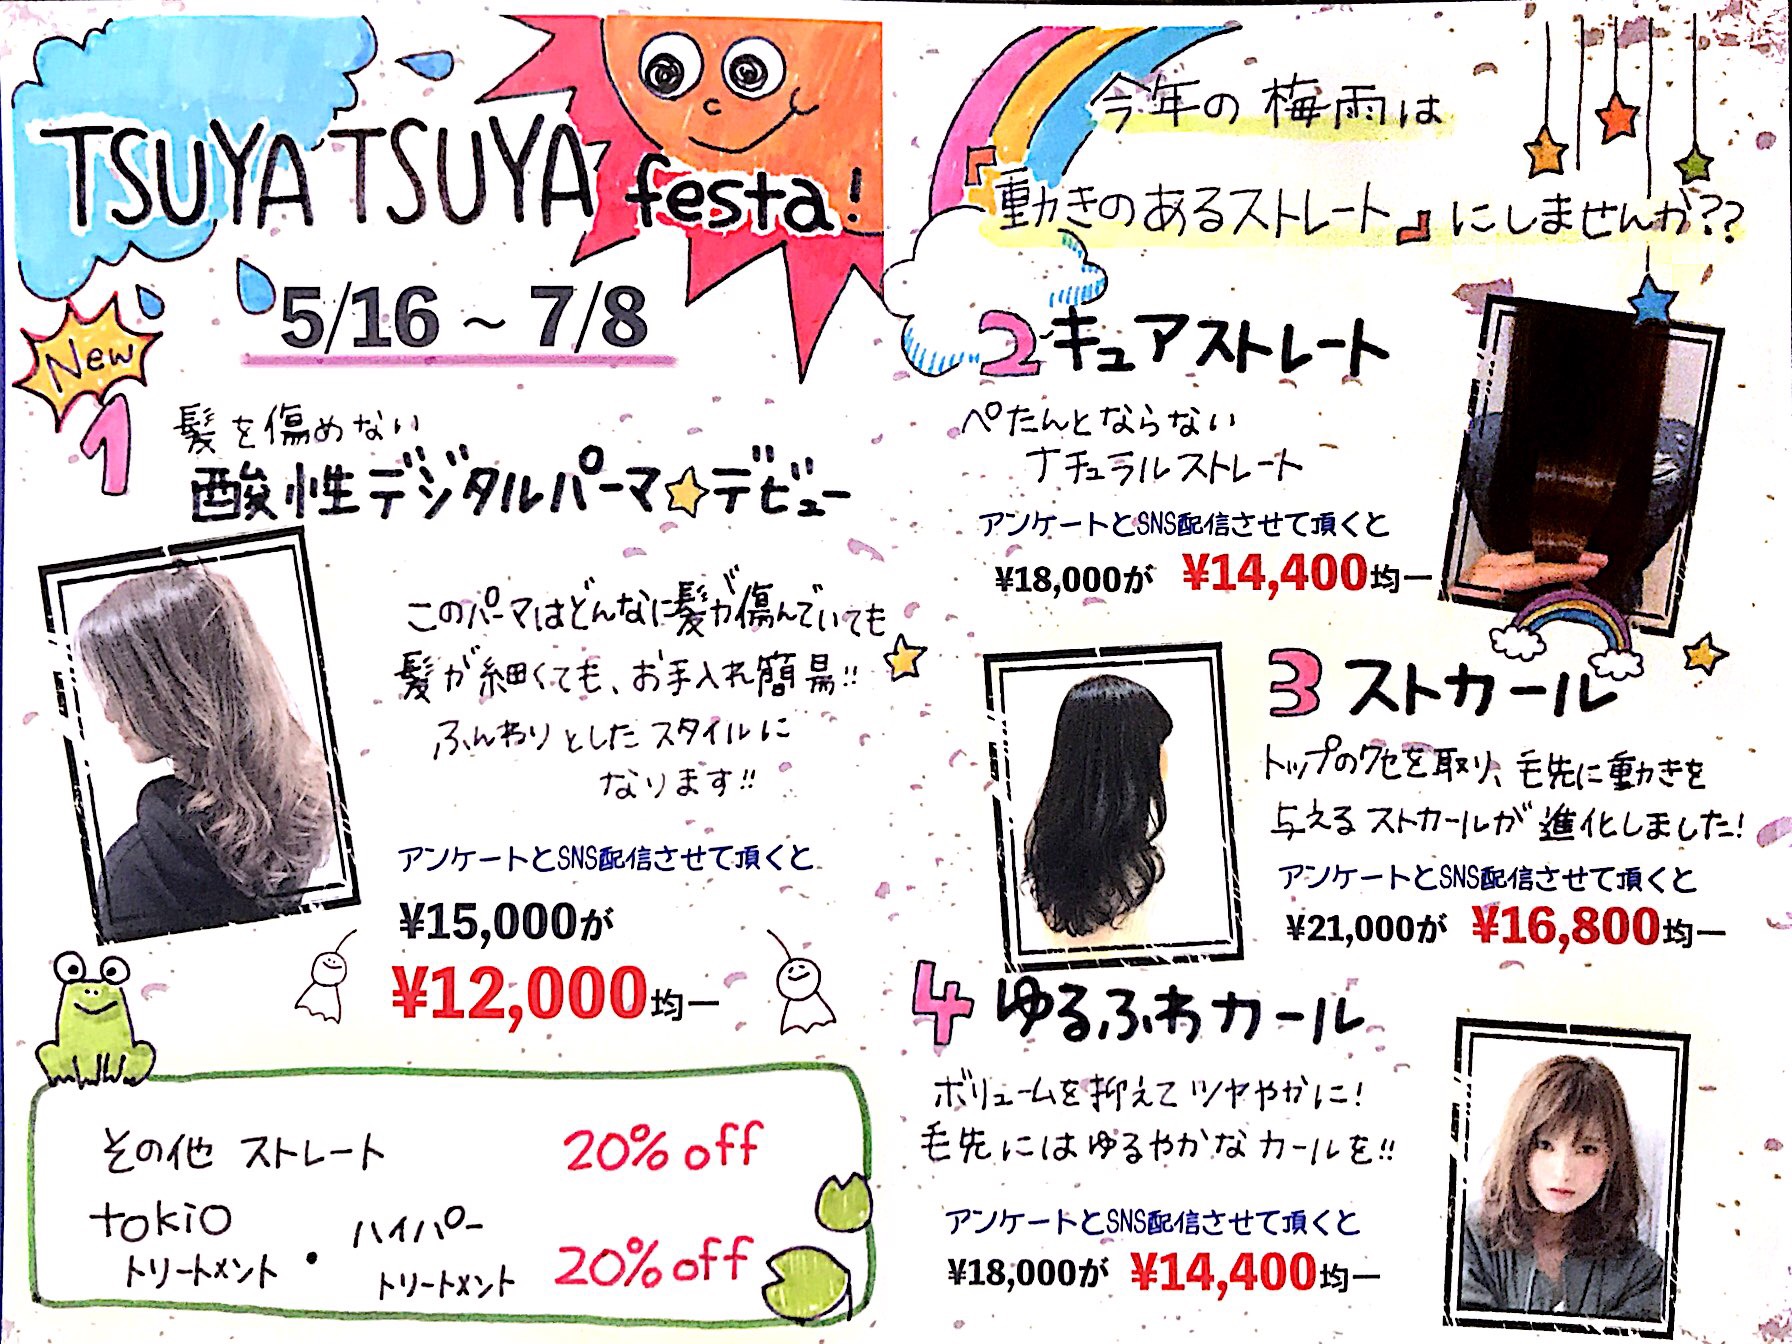 TSUYA TSUYA festa!
5/16 ~ 7/8
New
1 髪を傷めない
酸性デジタルパーマ★デビュー
このパーマはどんなに髪が傷んでいても
髪が細くても、お手入れ簡易!!
ふんわりとしたスタイルに
なります!!
アンケートとSNS配信させて頂くと
¥15,000が
¥12,000均一
その他 ストレート 20%off
tokio
トリートメント・ハイパー
トリートメント 20%off
今年の梅雨は
『動きのあるストレート』にしませんか??
2 キュアストレート
ぺたんとならない
ナチュラルストレート
アンケートとSNS配信させて頂くと
¥18,000が ¥14,400均一
3 ストカール
トップのクセを取り、毛先に動きを
与えるストカールが進化しました!
アンケートとSNS配信させて頂くと
¥21,000が ¥16,800均一
4 ゆるふわカール
ボリュームを抑えてツヤやかに!
毛先にはゆるやかなカールを!!
アンケートとSNS配信させて頂くと
¥18,000が ¥14,400均一